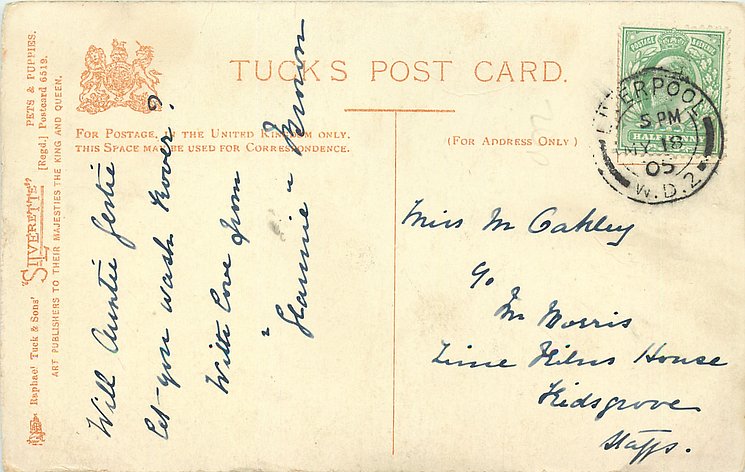 TUCK'S POST CARD.
FOR POSTAGE IN THE UNITED KINGDOM ONLY.
THIS SPACE MAY BE USED FOR CORRESPONDENCE.
(FOR ADDRESS ONLY)
Raphael Tuck & Sons' "SILVERETTE" [Regd.] Postcard 6519.
PETS & PUPPIES.
ART PUBLISHERS TO THEIR MAJESTIES THE KING AND QUEEN.
Will Auntie Gertie
let you wash Rover?
With love from
"Flannie" Brown
POSTAGE REVENUE
HALFPENNY
LIVERPOOL
5 PM
MY 18
05
W.D.2
Miss M Oakley
c/o
Mr Morris
Lime Kilns House
Kidsgrove
Staffs.